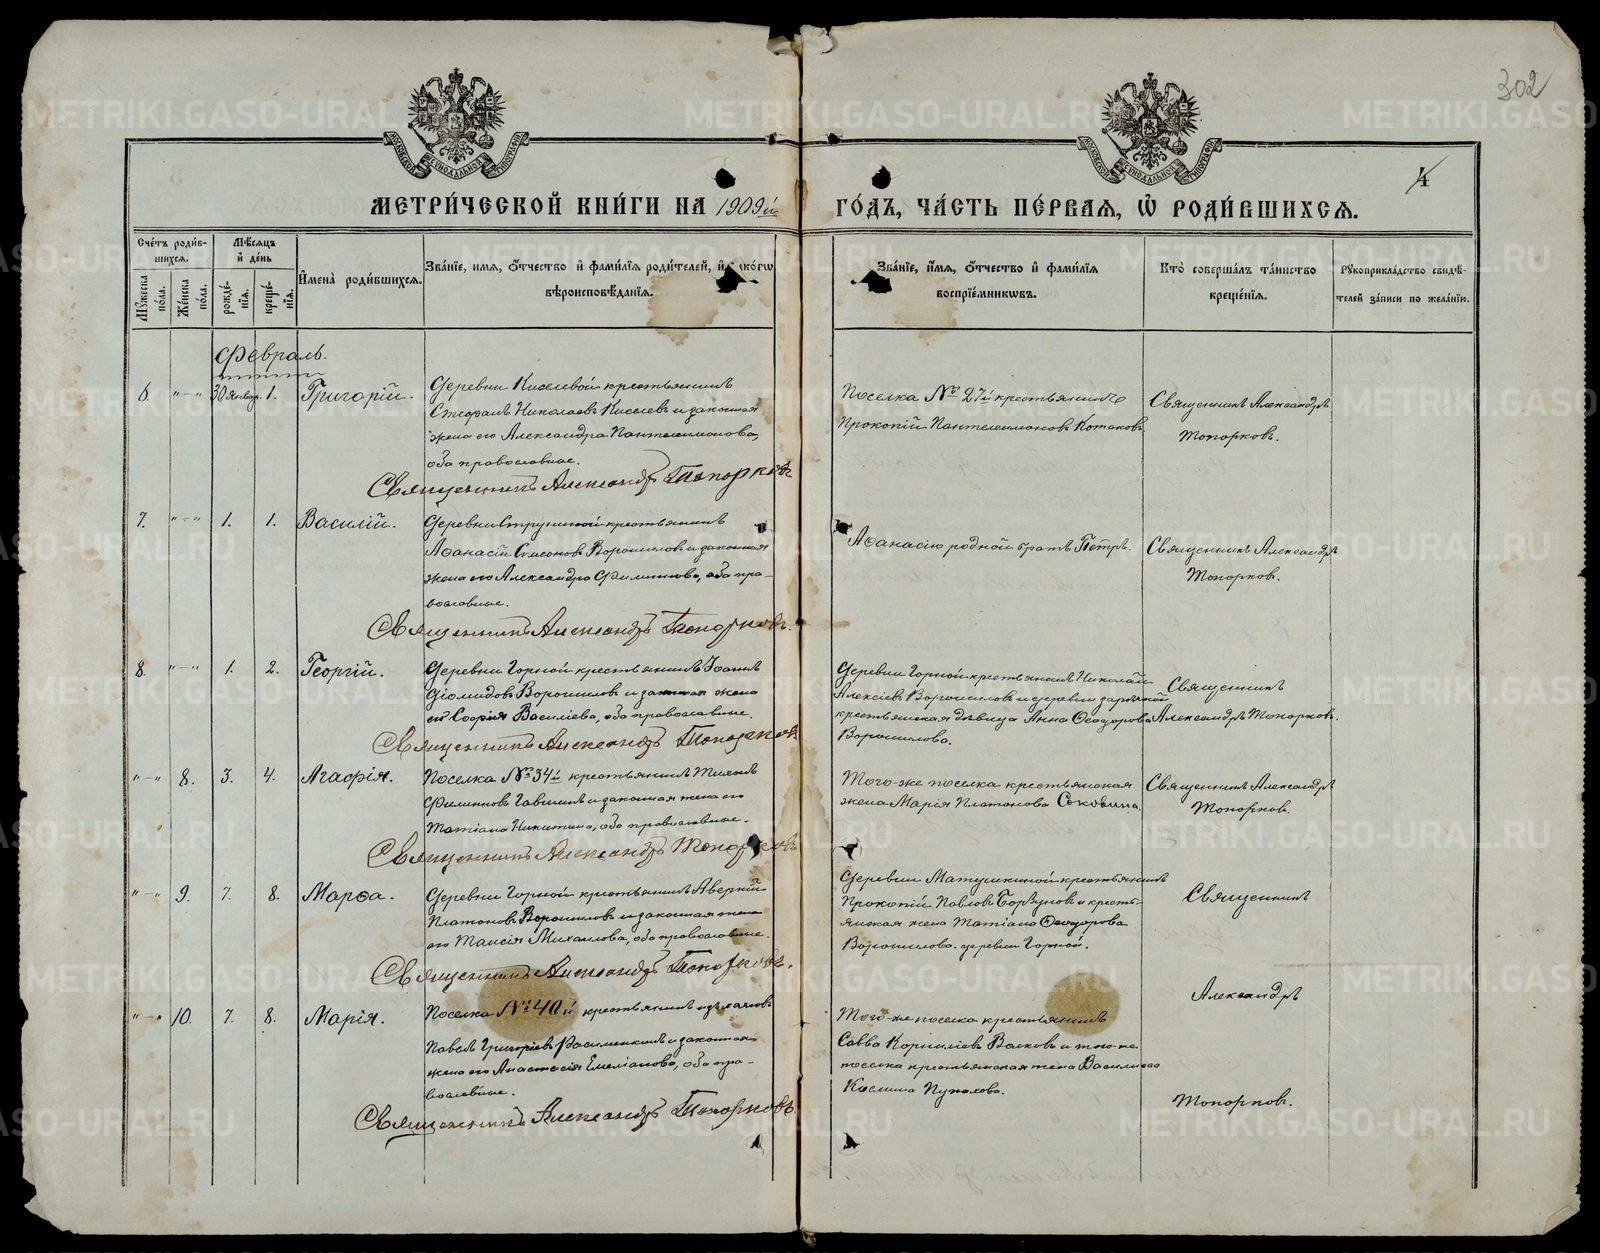 302
МОСКОВСКОЙ СѴНОДАЛЬНОЙ ТИПОГРАФІИ
МОСКОВСКОЙ СѴНОДАЛЬНОЙ ТИПОГРАФІИ
4
МЕТРИ́ЧЕСКОЙ КНИ́ГИ НА 1909й
ГО́ДЪ, ЧА́СТЬ ПЕ́РВАЯ, Ѡ РОДИ́ВШИХСЯ.
Сче́тъ роди́в-
шихся.
Му́жеска по́ла.
Же́нска по́ла.
Мѣ́сяцъ
и де́нь
рожде́нія.
креще́нія.
Имена̀ роди́вшихся.
Зва́ніе, имя, о́тчество и фами́лія роди́телей, и како́гѡ
вѣроисповѣ́данія.
Зва́ніе, и́мя, о́тчество и фами́лія
воспріе́мникѡвъ.
Кто̀ соверша́лъ та́инство
креще́нія.
Рукоприкла́дство свидѣ́-
телей за́писи по жела́нію.
Февраль.
6. "—" 30 январ. 1. Григорій.
Деревни Киселевой крестьянинъ
Стефанъ Николаевъ Киселевъ и законная
жена его Александра Пантелеимонова,
оба православные.
Священникъ Александръ Топорковъ
Поселка № 27й крестьянинъ
Прокопій Пантелеимоновъ Котаковъ
Священникъ Александръ
Топорковъ.
7. "—" 1. 1. Василій.
Деревни крестьянинъ
Аѳанасій Симеоновъ Ворошиловъ и законная
жена его Александра Филиппова, оба пра-
вославные.
Священникъ Александръ Топорковъ.
Аѳанасію родной братъ Петръ.
Священникъ Александръ
Топорковъ.
8. "—" 1. 2. Георгій.
Деревни Горной крестьянинъ Іоаннъ
Діомидовъ Ворошиловъ и законная жена
его Софія Василіева, оба православные.
Священникъ Александръ Топорковъ
Деревни Горной крестьянинъ Николай
Алексіевъ Ворошиловъ и деревни
крестьянская дѣвица Анна Ѳеодорова
Ворошилова.
Священникъ
Александръ Топорковъ.
"—" 8. 3. 4. Агафія.
Поселка № 34й крестьянинъ
Филипповъ и законная жена его
Татіана Никитина, оба православные.
Священникъ Александръ Топорковъ
Того-же поселка крестьянская
жена Марія Платонова
Священникъ Александръ
Топорковъ.
"—" 9. 7. 8. Марѳа.
Деревни Горной крестьянинъ Аверкій
Платоновъ Ворошиловъ и законная жена
его Таисія Михаилова, оба православные.
Священникъ Александръ Топорковъ.
Деревни Матушкиной крестьянинъ
Прокопій Павловъ Борзуновъ и кресть-
янская жена Татіана Ѳеодорова
Ворошилова деревни Горной.
Священникъ
"—" 10. 7. 8. Марія.
Поселка № 40й крестьянинъ
Павелъ Григоріевъ и законная
жена его Анастасія Емеліанова, оба пра-
вославные.
Священникъ Александръ Топорковъ.
Того-же поселка крестьянинъ
Савва Корниліевъ Волковъ и того-же
поселка крестьянская жена Василиса
Косьмина
Александръ
Топорковъ.
METRIKI.GASO-URAL.RU